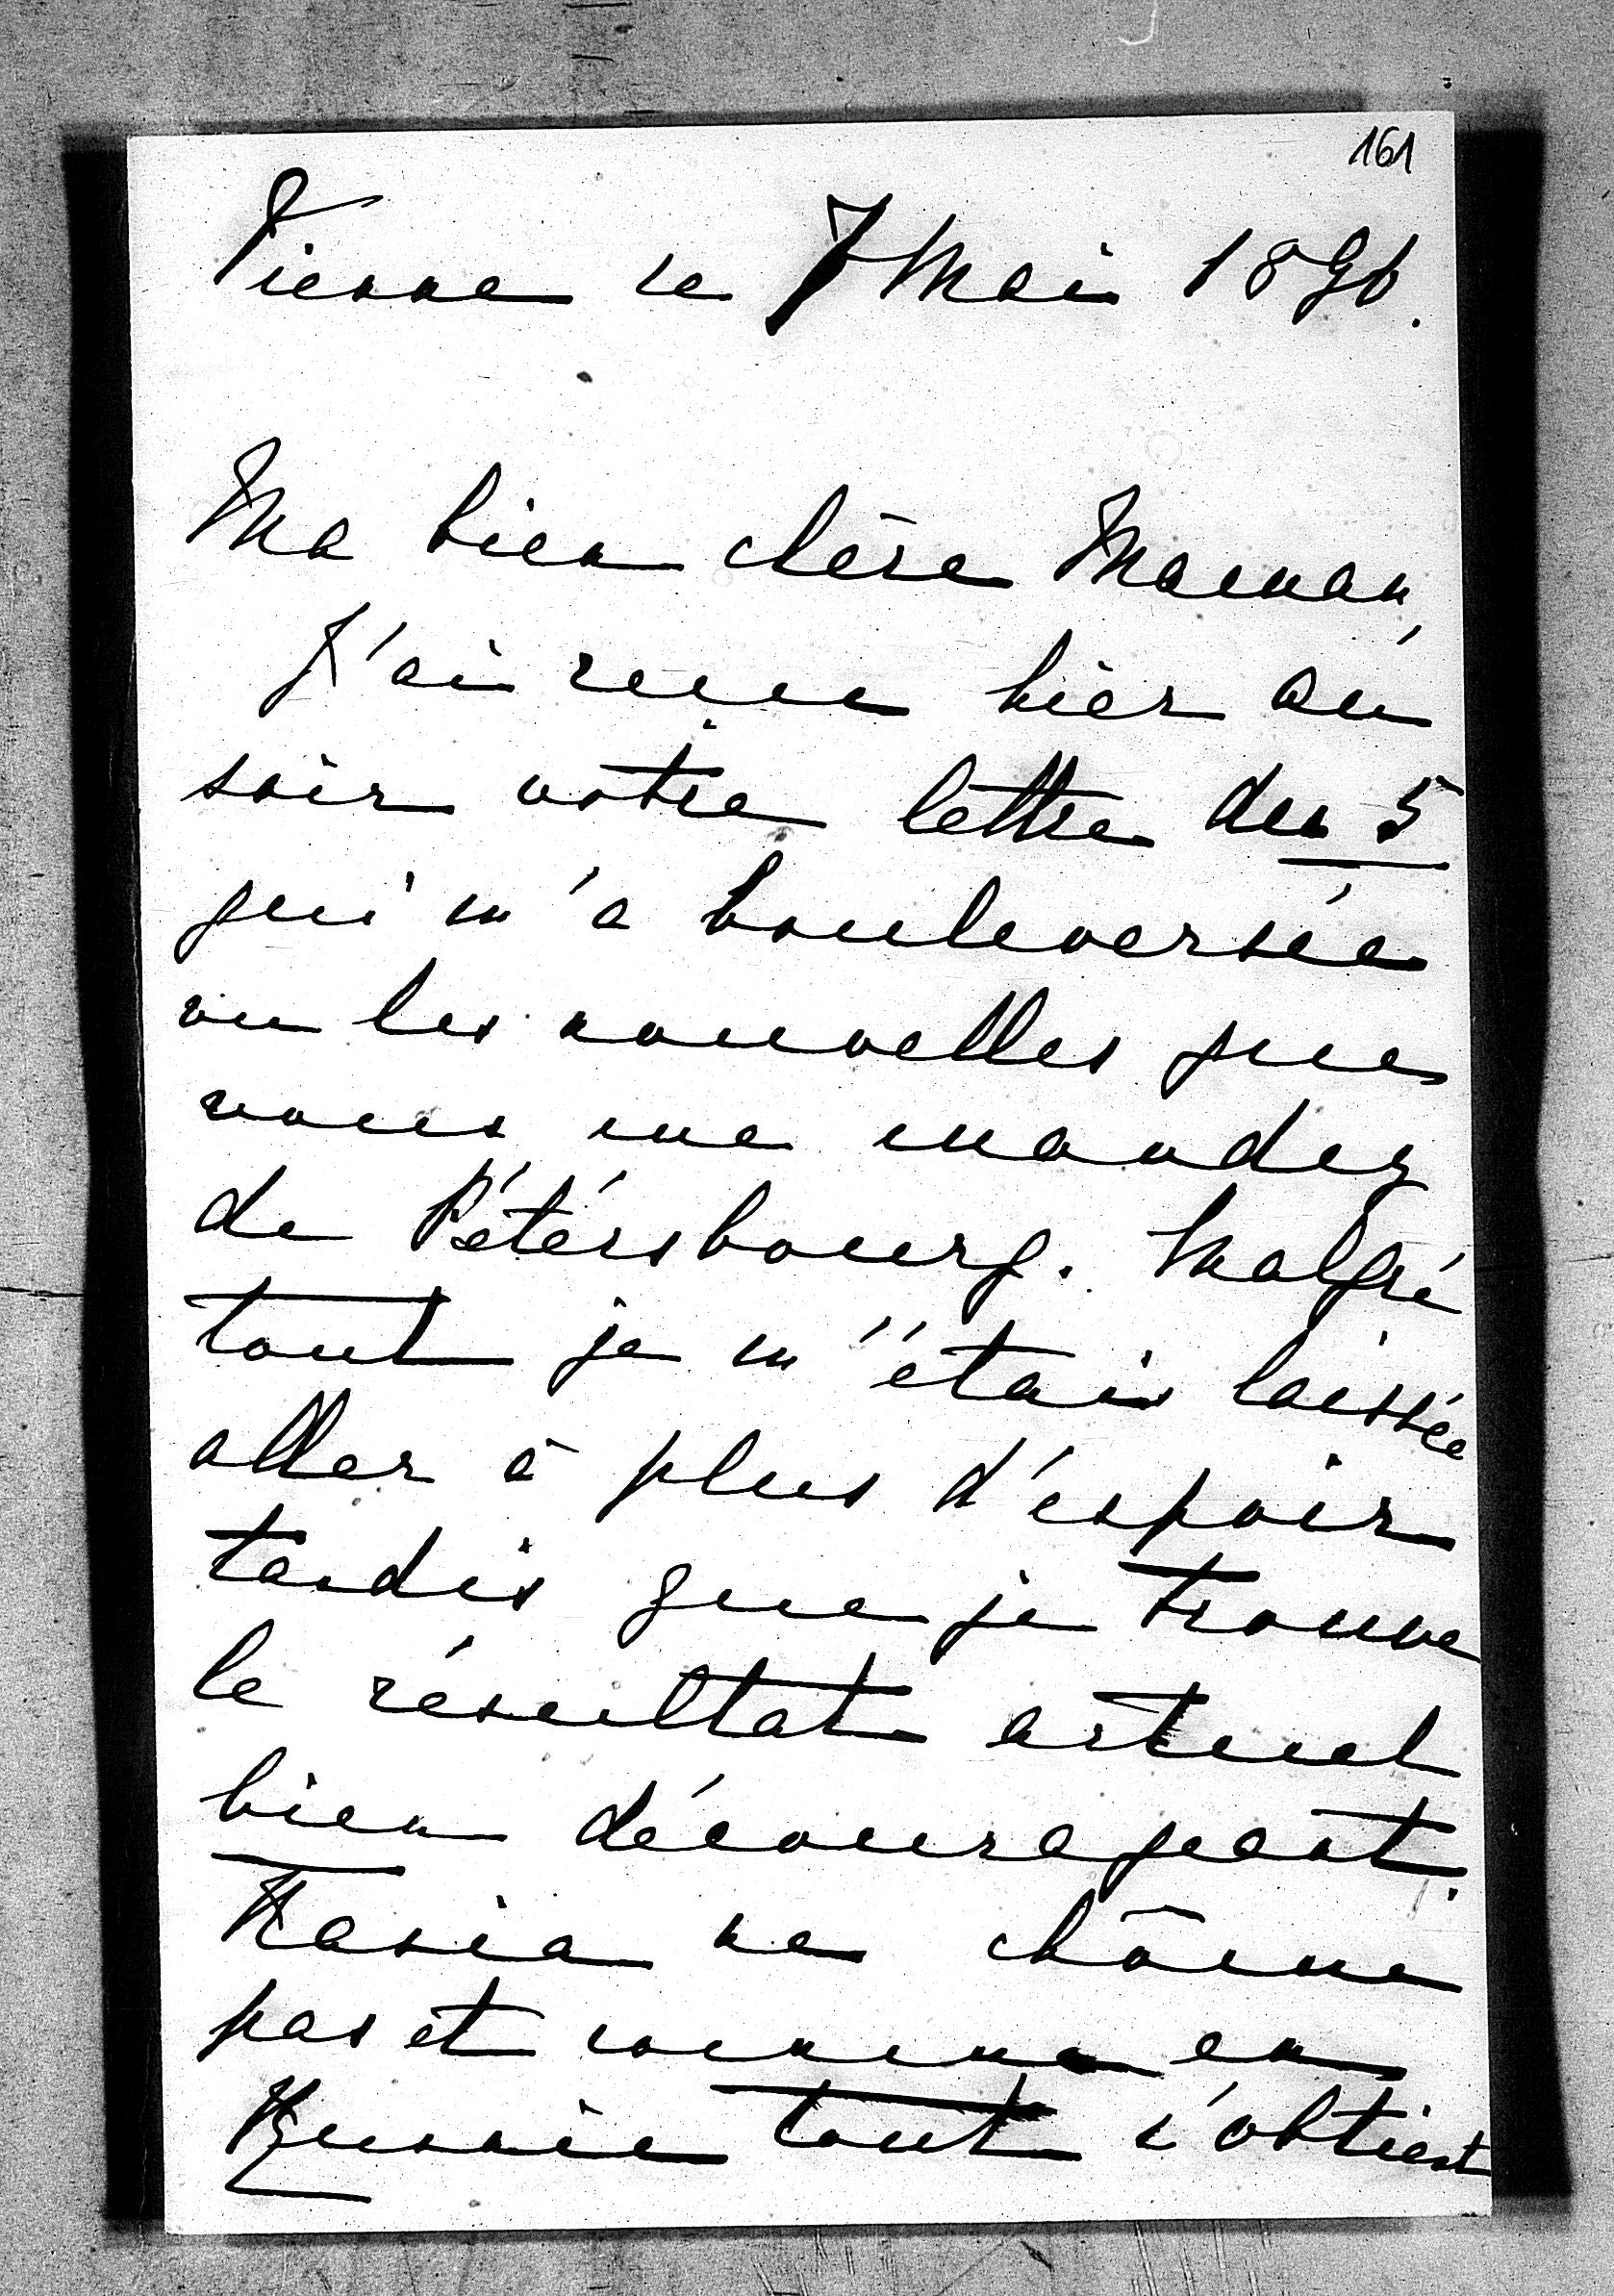 161
Vienne le 7 Mai 1896.
Ma bien chère Maman,
J'ai reçue hier au
soir votre lettre du 5
qui m'a bouleversée
vu les nouvelles que
vous me mandez
de Pétérsbourg. Malgré
tout je m'étais laissée
aller à plus d'espoir
tandis que je trouve
le résultat actuel
bien décourageant.
Kasia ne chôme
pas et comme en
Russie tout s'obtient